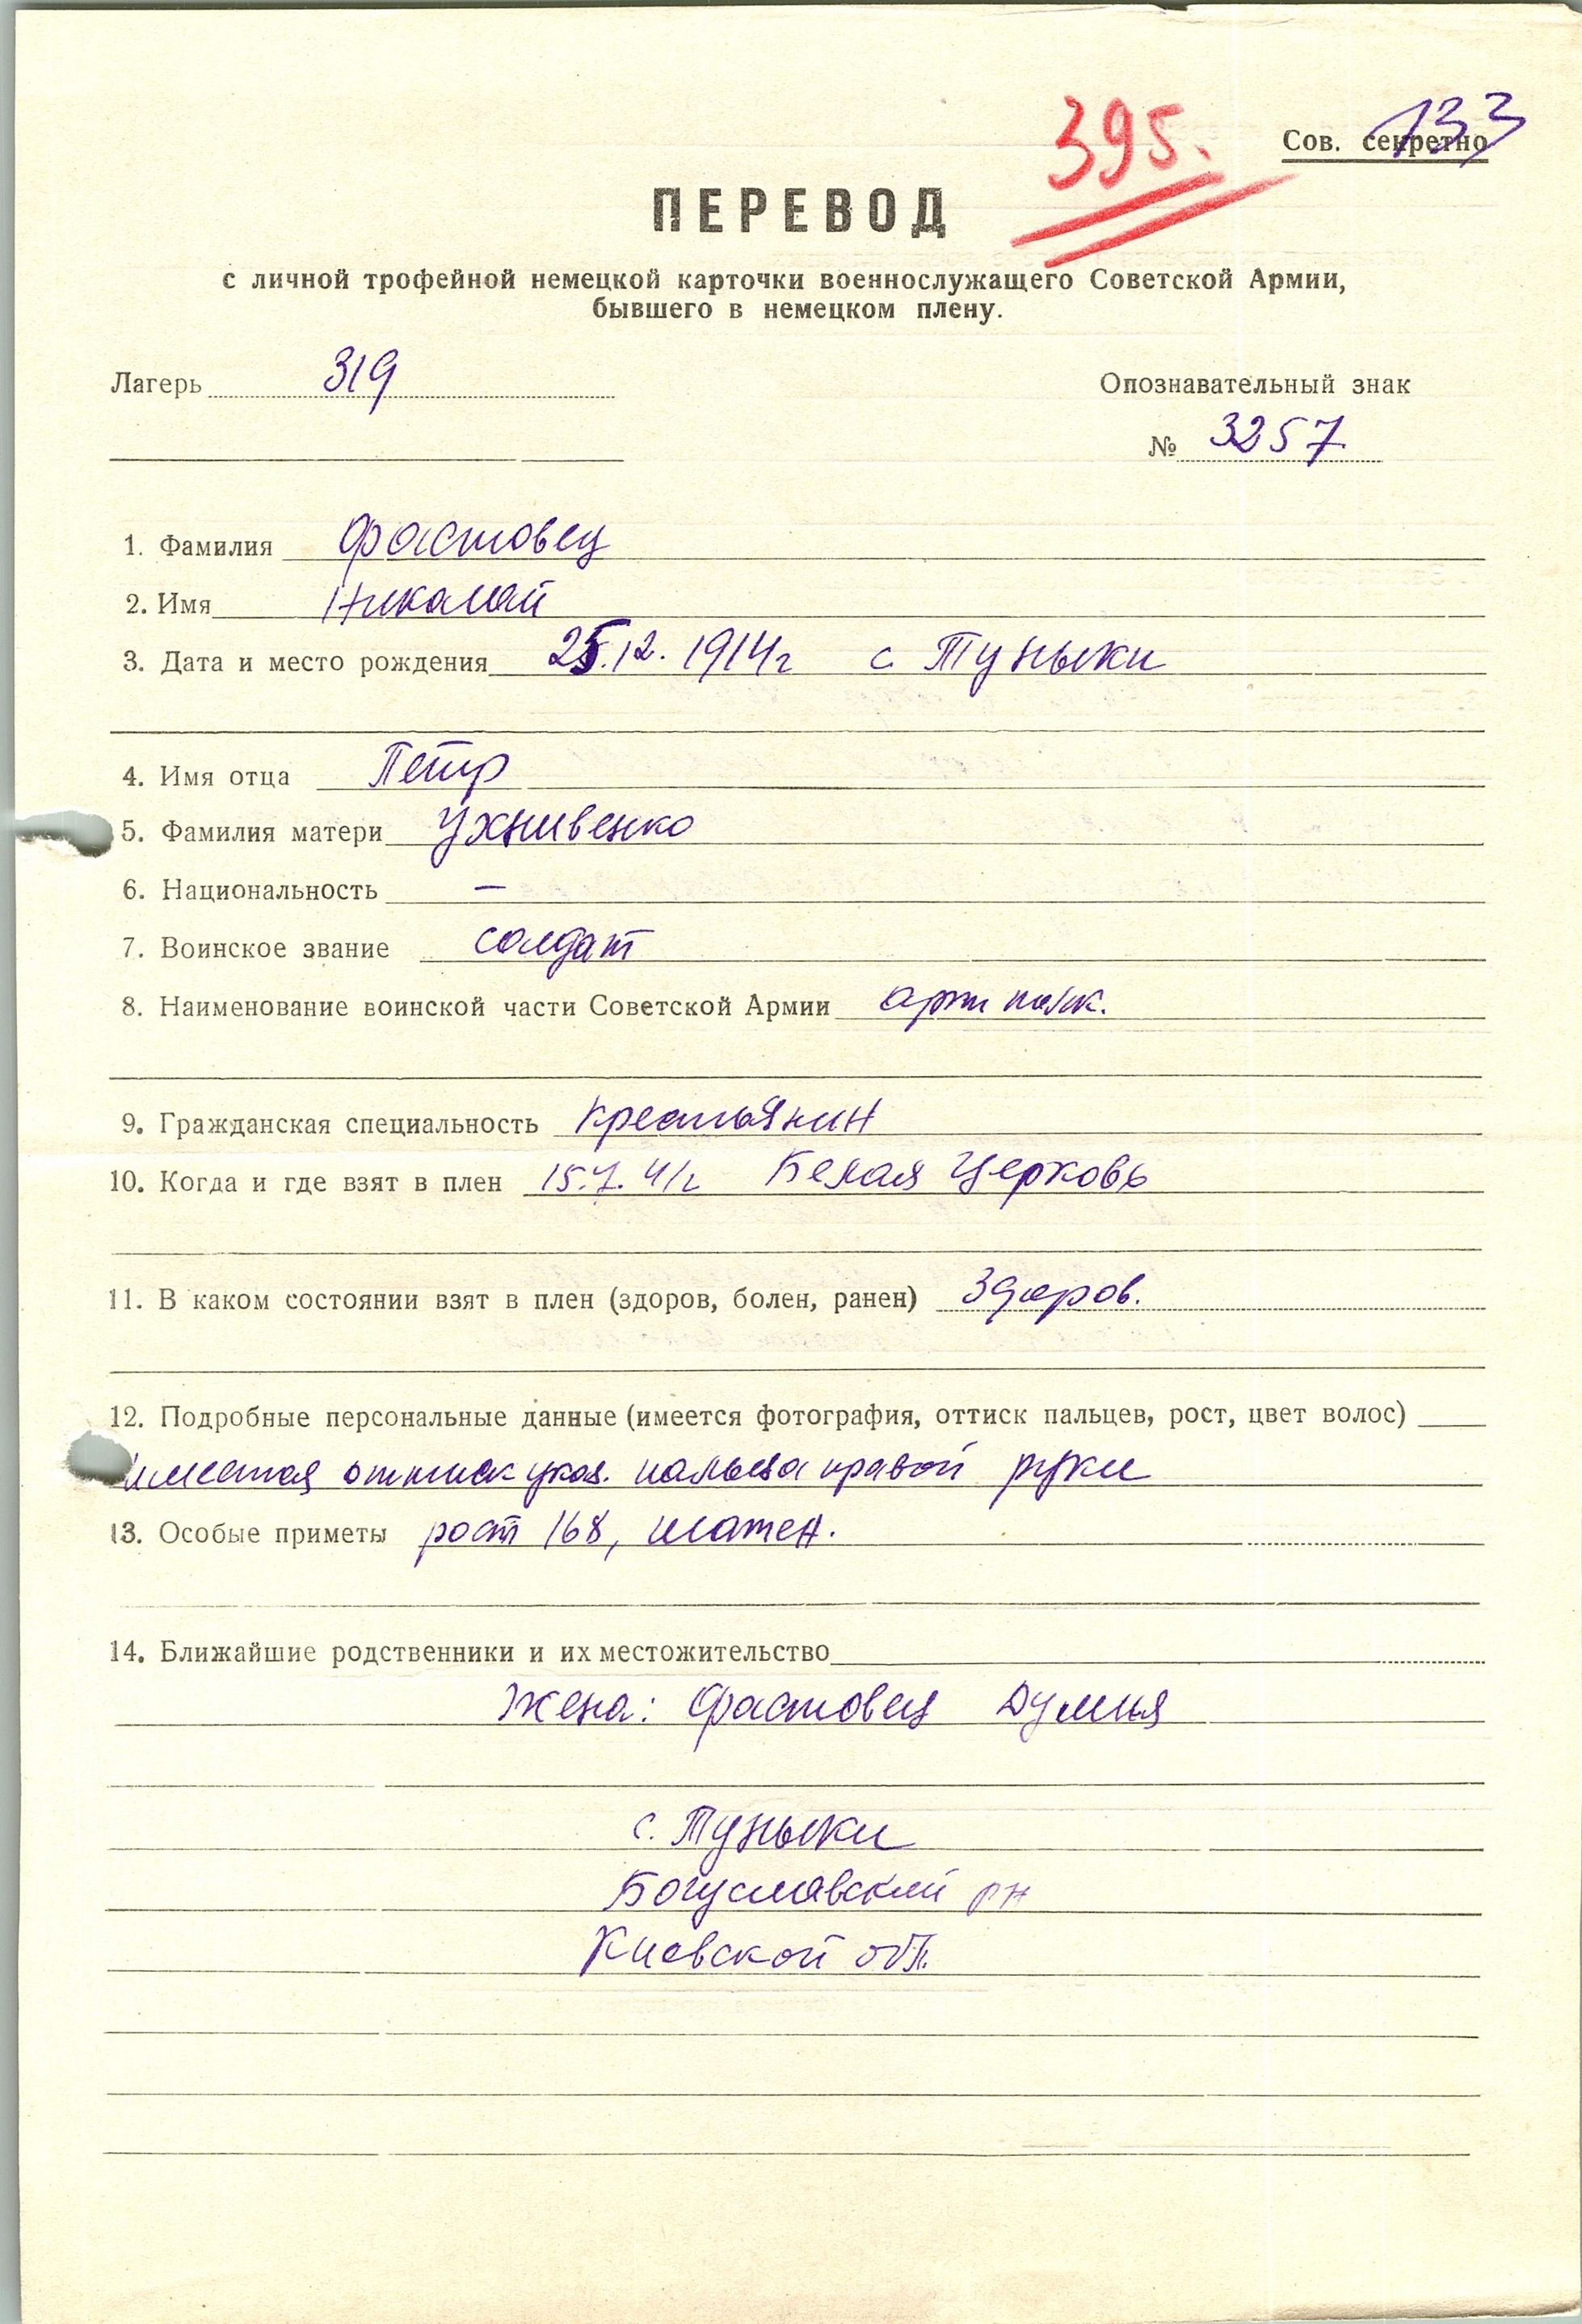 395.
133
Сов. секретно
ПЕРЕВОД
с личной трофейной немецкой карточки военнослужащего Советской Армии,
бывшего в немецком плену.
Лагерь 319
Опознавательный знак
№ 3257
1. Фамилия Фастовец
2. Имя Николай
3. Дата и место рождения 25.12.1914г с Туныки
4. Имя отца Петр
5. Фамилия матери Ухнивенко
6. Национальность —
7. Воинское звание солдат
8. Наименование воинской части Советской Армии арт полк.
9. Гражданская специальность Крестьянин
10. Когда и где взят в плен 15.7.41г Белая Церковь
11. В каком состоянии взят в плен (здоров, болен, ранен) Здоров.
12. Подробные персональные данные (имеется фотография, оттиск пальцев, рост, цвет волос)
имеется оттиск указ. пальца правой руки
13. Особые приметы рост 168, шатен.
14. Ближайшие родственники и их местожительство
Жена: Фастовец Думня
с. Туныки
Богуславский рн
Киевской обл.